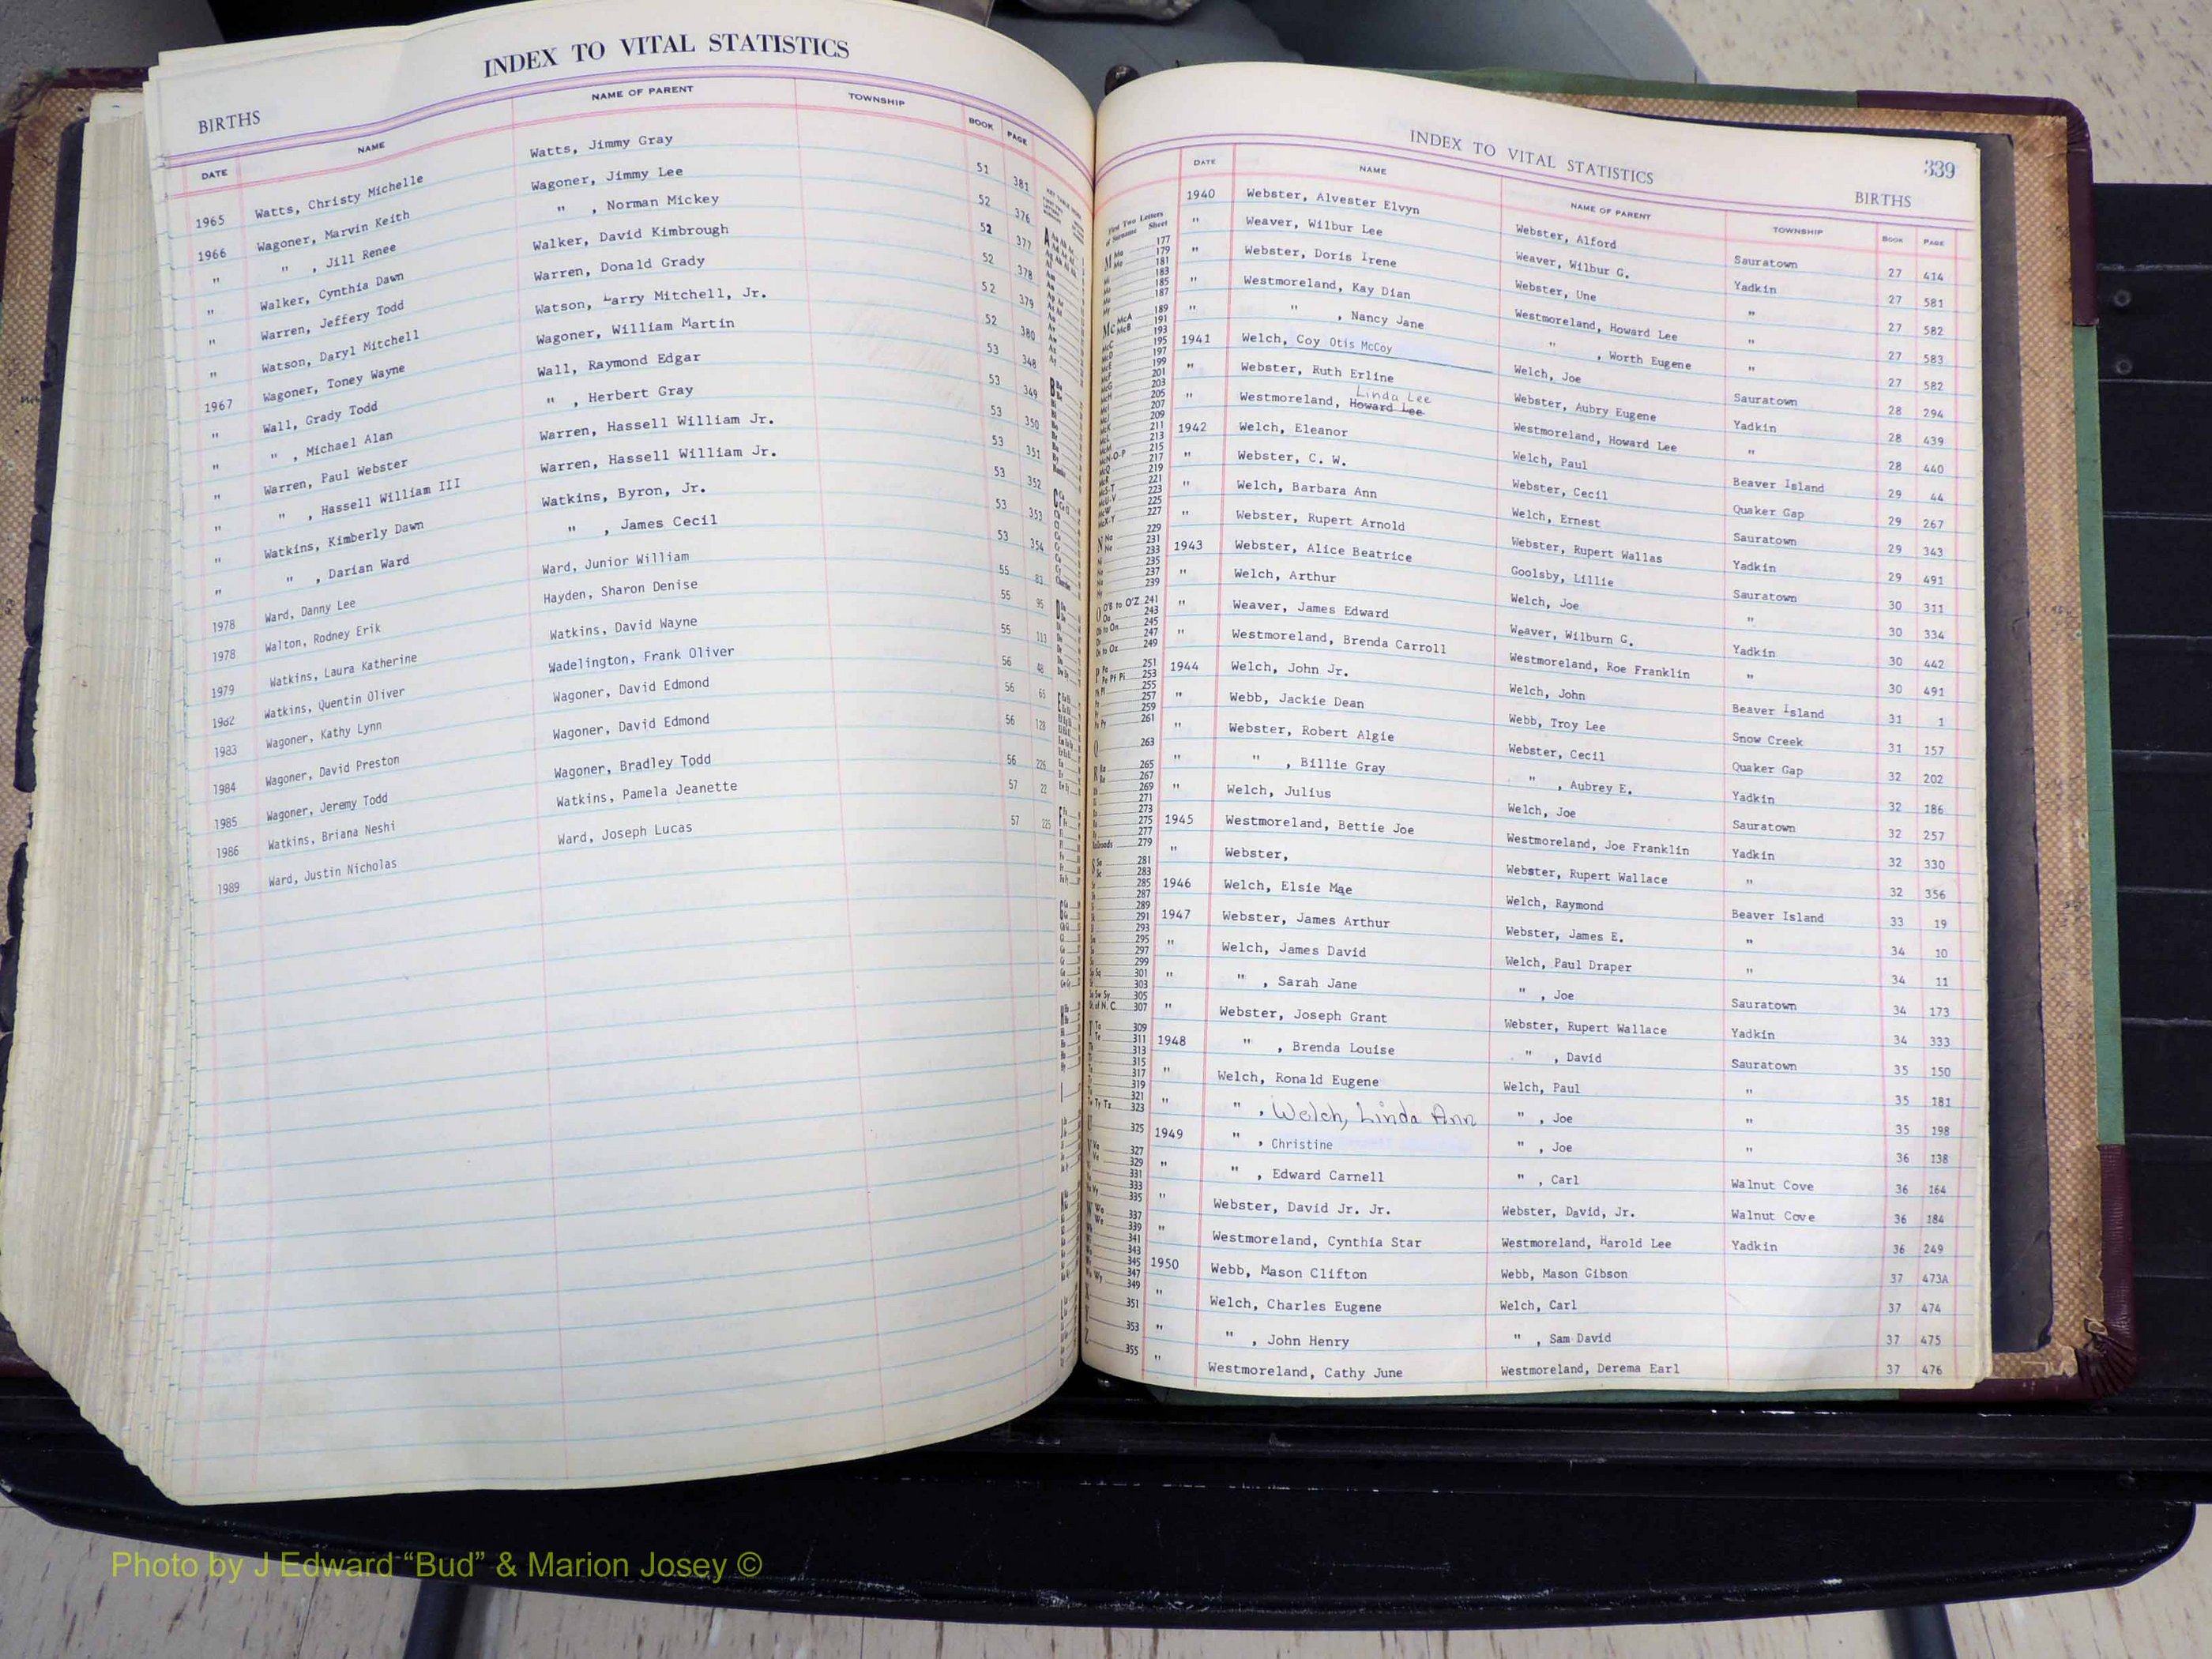 INDEX TO VITAL STATISTICS
BIRTHS
DATE NAME NAME OF PARENT TOWNSHIP BOOK PAGE
1965 Watts, Christy Michelle Watts, Jimmy Gray 51 381
1966 Wagoner, Marvin Keith Wagoner, Jimmy Lee 52 376
" " , Jill Renee " , Norman Mickey 52 377
" Walker, Cynthia Dawn Walker, David Kimbrough 52 378
" Warren, Jeffery Todd Warren, Donald Grady 52 379
" Watson, Daryl Mitchell Watson, Larry Mitchell, Jr. 52 380
1967 Wagoner, Toney Wayne Wagoner, William Martin 53 348
" Wall, Grady Todd Wall, Raymond Edgar 53 349
" " , Michael Alan " , Herbert Gray 53 350
" Warren, Paul Webster Warren, Hassell William Jr. 53 351
" " , Hassell William III Warren, Hassell William Jr. 53 352
" Watkins, Kimberly Dawn Watkins, Byron, Jr. 53 353
" " , Darian Ward " , James Cecil 53 354
1978 Ward, Danny Lee Ward, Junior William 55 83
1978 Walton, Rodney Erik Hayden, Sharon Denise 55 95
1979 Watkins, Laura Katherine Watkins, David Wayne 55 113
1982 Watkins, Quentin Oliver Wadelington, Frank Oliver 56 48
1983 Wagoner, Kathy Lynn Wagoner, David Edmond 56 65
1984 Wagoner, David Preston Wagoner, David Edmond 56 128
1985 Wagoner, Jeremy Todd Wagoner, Bradley Todd 56 226
1986 Watkins, Briana Neshi Watkins, Pamela Jeanette 57 22
1989 Ward, Justin Nicholas Ward, Joseph Lucas 57 225
INDEX TO VITAL STATISTICS 339
BIRTHS
DATE NAME NAME OF PARENT TOWNSHIP BOOK PAGE
1940 Webster, Alvester Elvyn Webster, Alford Sauratown 27 414
" Weaver, Wilbur Lee Weaver, Wilbur G. Yadkin 27 581
" Webster, Doris Irene Webster, Une " 27 582
" Westmoreland, Kay Dian Westmoreland, Howard Lee " 27 583
" " , Nancy Jane " , Worth Eugene " 27 582
1941 Welch, Coy Otis McCoy Welch, Joe Sauratown 28 294
" Webster, Ruth Erline Webster, Aubry Eugene Yadkin 28 439
Linda Lee
" Westmoreland, Howard Lee Westmoreland, Howard Lee " 28 440
1942 Welch, Eleanor Welch, Paul Beaver Island 29 44
" Webster, C. W. Webster, Cecil Quaker Gap 29 267
" Welch, Barbara Ann Welch, Ernest Sauratown 29 343
" Webster, Rupert Arnold Webster, Rupert Wallas Yadkin 29 491
1943 Webster, Alice Beatrice Goolsby, Lillie Sauratown 30 311
" Welch, Arthur Welch, Joe " 30 334
" Weaver, James Edward Weaver, Wilburn G. Yadkin 30 442
" Westmoreland, Brenda Carroll Westmoreland, Roe Franklin " 30 491
1944 Welch, John Jr. Welch, John Beaver Island 31 1
" Webb, Jackie Dean Webb, Troy Lee Snow Creek 31 157
" Webster, Robert Algie Webster, Cecil Quaker Gap 32 202
" " , Billie Gray " , Aubrey E. Yadkin 32 186
" Welch, Julius Welch, Joe Sauratown 32 257
1945 Westmoreland, Bettie Joe Westmoreland, Joe Franklin Yadkin 32 330
" Webster, Webster, Rupert Wallace " 32 356
1946 Welch, Elsie Mae Welch, Raymond Beaver Island 33 19
1947 Webster, James Arthur Webster, James E. " 34 10
" Welch, James David Welch, Paul Draper " 34 11
" " , Sarah Jane " , Joe Sauratown 34 173
" Webster, Joseph Grant Webster, Rupert Wallace Yadkin 34 333
1948 " , Brenda Louise " , David Sauratown 35 150
" Welch, Ronald Eugene Welch, Paul " 35 181
" " , Welch, Linda Ann " , Joe " 35 198
1949 " , Christine " , Joe " 36 138
" " , Edward Carnell " , Carl Walnut Cove 36 164
" Webster, David Jr. Jr. Webster, David, Jr. Walnut Cove 36 184
" Westmoreland, Cynthia Star Westmoreland, Harold Lee Yadkin 36 249
1950 Webb, Mason Clifton Webb, Mason Gibson 37 473A
" Welch, Charles Eugene Welch, Carl 37 474
" " , John Henry " , Sam David 37 475
" Westmoreland, Cathy June Westmoreland, Derema Earl 37 476
Photo by J Edward “Bud” & Marion Josey ©